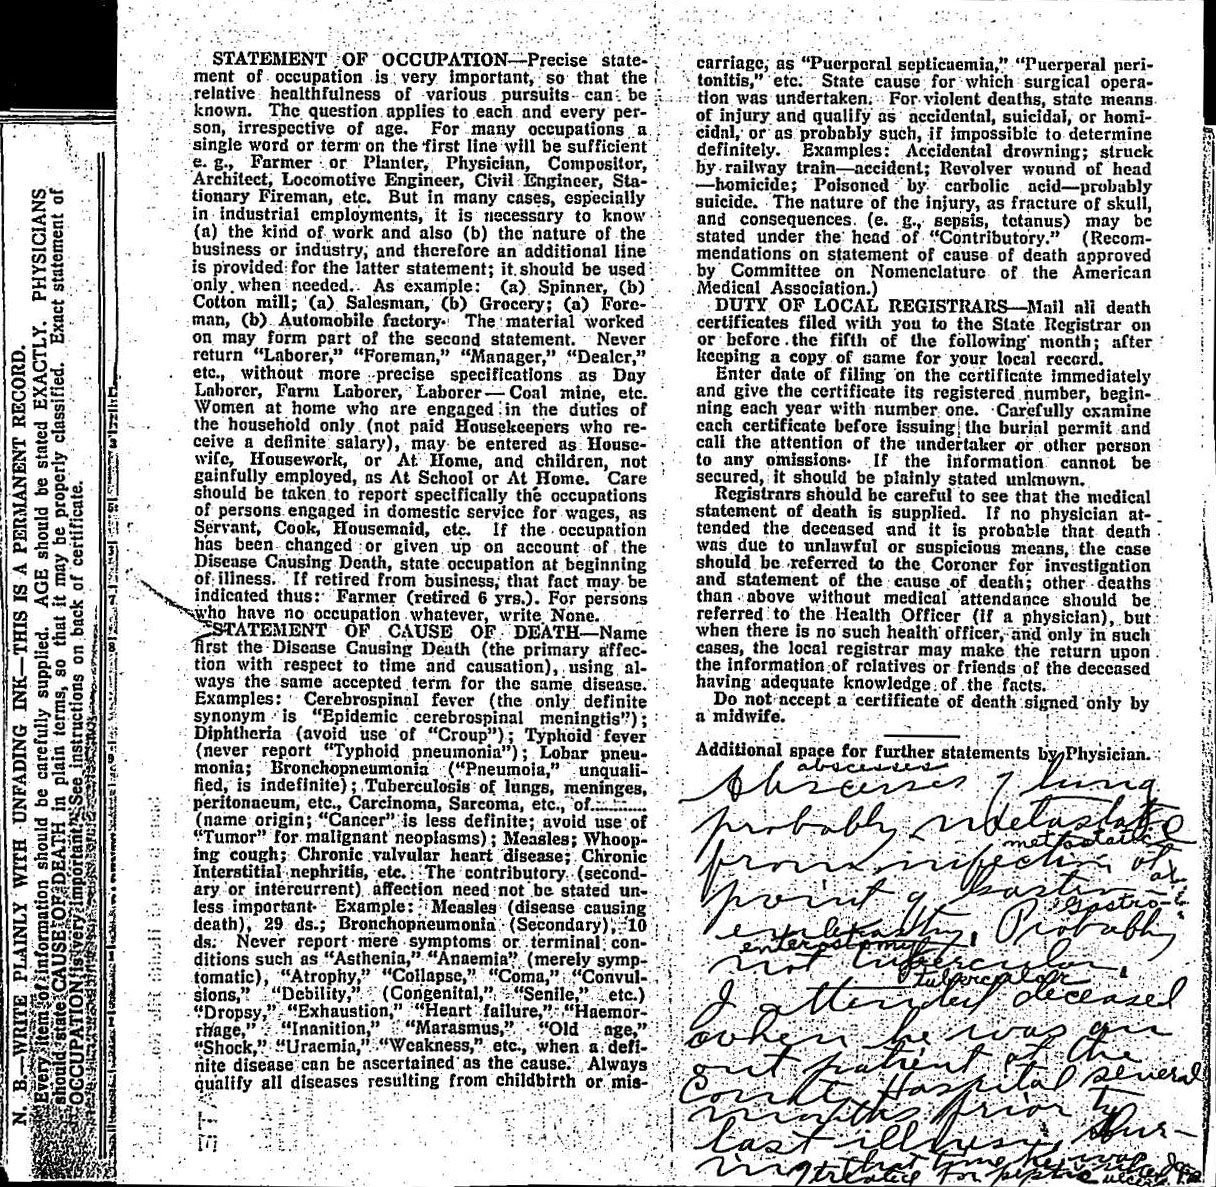 N. B.—WRITE PLAINLY WITH UNFADING INK—THIS IS A PERMANENT RECORD.
Every item of information should be carefully supplied. AGE should be stated EXACTLY. PHYSICIANS
should state CAUSE OF DEATH in plain terms, so that it may be properly classified. Exact statement of
OCCUPATION is very important. See instructions on back of certificate.
STATEMENT OF OCCUPATION—Precise state-
ment of occupation is very important, so that the
relative healthfulness of various pursuits can be
known. The question applies to each and every per-
son, irrespective of age. For many occupations a
single word or term on the first line will be sufficient
e. g., Farmer or Planter, Physician, Compositor,
Architect, Locomotive Engineer, Civil Engineer, Sta-
tionary Fireman, etc. But in many cases, especially
in industrial employments, it is necessary to know
(a) the kind of work and also (b) the nature of the
business or industry, and therefore an additional line
is provided for the latter statement; it should be used
only when needed. As example: (a) Spinner, (b)
Cotton mill; (a) Salesman, (b) Grocery; (a) Fore-
man, (b) Automobile factory. The material worked
on may form part of the second statement. Never
return "Laborer," "Foreman," "Manager," "Dealer,"
etc., without more precise specifications as Day
Laborer, Farm Laborer, Laborer—Coal mine, etc.
Women at home who are engaged in the duties of
the household only (not paid Housekeepers who re-
ceive a definite salary), may be entered as House-
wife, Housework, or At Home, and children, not
gainfully employed, as At School or At Home. Care
should be taken to report specifically the occupations
of persons engaged in domestic service for wages, as
Servant, Cook, Housemaid, etc. If the occupation
has been changed or given up on account of the
Disease Causing Death, state occupation at beginning
of illness. If retired from business, that fact may be
indicated thus: Farmer (retired 6 yrs.). For persons
who have no occupation whatever, write None.
STATEMENT OF CAUSE OF DEATH—Name
first the Disease Causing Death (the primary affec-
tion with respect to time and causation), using al-
ways the same accepted term for the same disease.
Examples: Cerebrospinal fever (the only definite
synonym is "Epidemic cerebrospinal meningtis");
Diphtheria (avoid use of "Croup"); Typhoid fever
(never report "Typhoid pneumonia"); Lobar pneu-
monia; Bronchopneumonia ("Pneumoia," unquali-
fied, is indefinite); Tuberculosis of lungs, meninges,
peritonaeum, etc., Carcinoma, Sarcoma, etc., of............
(name origin; "Cancer" is less definite; avoid use of
"Tumor" for malignant neoplasms); Measles; Whoop-
ing cough; Chronic valvular heart disease; Chronic
Interstitial nephritis, etc. The contributory (second-
ary or intercurrent) affection need not be stated un-
less important. Example: Measles (disease causing
death), 29 ds.; Bronchopneumonia (Secondary), 10
ds. Never report mere symptoms or terminal con-
ditions such as "Asthenia," "Anaemia" (merely symp-
tomatic), "Atrophy," "Collapse," "Coma," "Convul-
sions," "Debility," (Congenital," "Senile," etc.)
"Dropsy," "Exhaustion," "Heart failure," "Haemor-
rhage," "Inanition," "Marasmus," "Old age,"
"Shock," "Uraemia," "Weakness," etc., when a defi-
nite disease can be ascertained as the cause. Always
qualify all diseases resulting from childbirth or mis-
carriage, as "Puerperal septicaemia," "Puerperal peri-
tonitis," etc. State cause for which surgical opera-
tion was undertaken. For violent deaths, state means
of injury and qualify as accidental, suicidal, or homi-
cidal, or as probably such, if impossible to determine
definitely. Examples: Accidental drowning; struck
by railway train—accident; Revolver wound of head
—homicide; Poisoned by carbolic acid—probably
suicide. The nature of the injury, as fracture of skull,
and consequences (e. g., sepsis, tetanus) may be
stated under the head of "Contributory." (Recom-
mendations on statement of cause of death approved
by Committee on Nomenclature of the American
Medical Association.)
DUTY OF LOCAL REGISTRARS—Mail all death
certificates filed with you to the State Registrar on
or before the fifth of the following month; after
keeping a copy of same for your local record.
Enter date of filing on the certificate immediately
and give the certificate its registered number, begin-
ning each year with number one. Carefully examine
each certificate before issuing the burial permit and
call the attention of the undertaker or other person
to any omissions. If the information cannot be
secured, it should be plainly stated unknown.
Registrars should be careful to see that the medical
statement of death is supplied. If no physician at-
tended the deceased and it is probable that death
was due to unlawful or suspicious means, the case
should be referred to the Coroner for investigation
and statement of the cause of death; other deaths
than above without medical attendance should be
referred to the Health Officer (if a physician), but
when there is no such health officer, and only in such
cases, the local registrar may make the return upon
the information of relatives or friends of the deceased
having adequate knowledge of the facts.
Do not accept a certificate of death signed only by
a midwife.
Additional space for further statements by Physician.
abscesses
Abscesses of lung
probably metastatic
metastatic
from infection at
point of gastro-
gastro-
enterostomy. Probably
enterostomy
not tubercular.
tubercular
I attended deceased
when he was an
out patient at the
County Hospital several
months prior to
last illness. Dur-
ing that time he was
treated for peptic ulcer